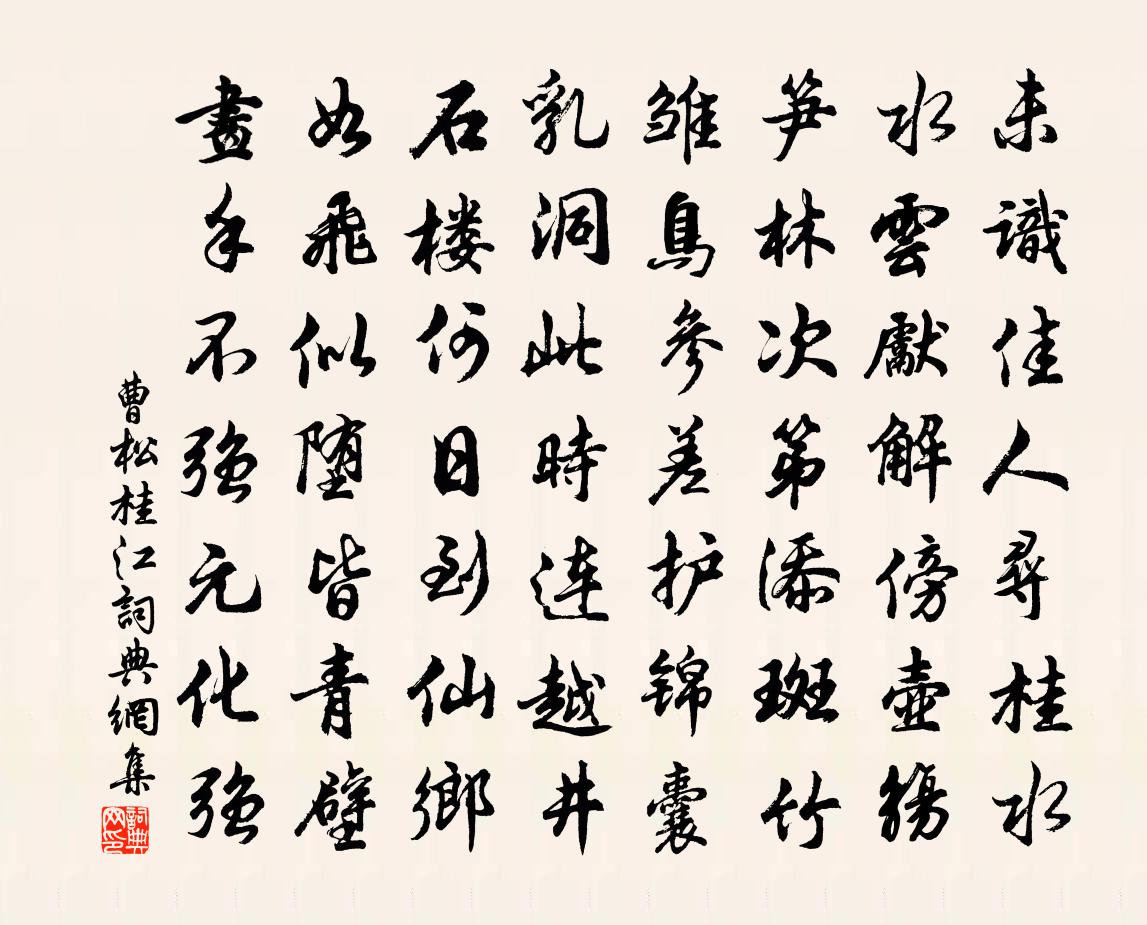 未識佳人尋桂水
水雲獻解傍壺觴
笋林次第添斑竹
雏鳥參差护锦囊
乳洞此時連越井
石楼何日到仙鄉
如飛似堕皆青壁
畫手不强元化强
曹松桂江詞典網集
詞典网印